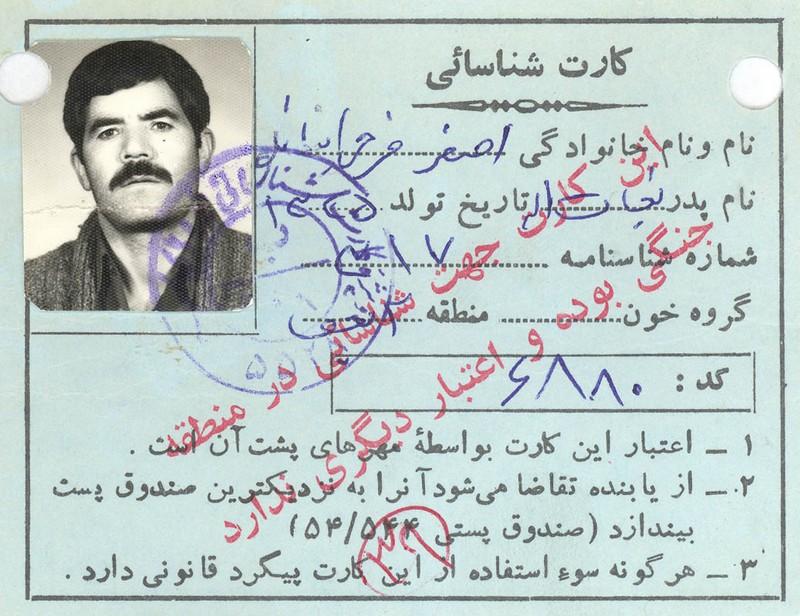 کارت شناسائی
نام و نام خانوادگی اصغر
نام پدر نجات اله تاریخ تولد
شماره شناسنامه ۴۱۷
گروه خون منطقه
کد : ۶۸۸۰
۱ ـ اعتبار این کارت بواسطهٔ مهرهای پشت آن است .
۲ ـ از یابنده تقاضا می‌شود آنرا به نزدیکترین صندوق پست
بیندازد (صندوق پستی ۵۴/۵۴۴)
۳ ـ هرگونه سوء استفاده از این کارت پیگرد قانونی دارد .
این کارت جهت شناسائی در منطقه
جنگی بوده و اعتبار دیگری ندارد